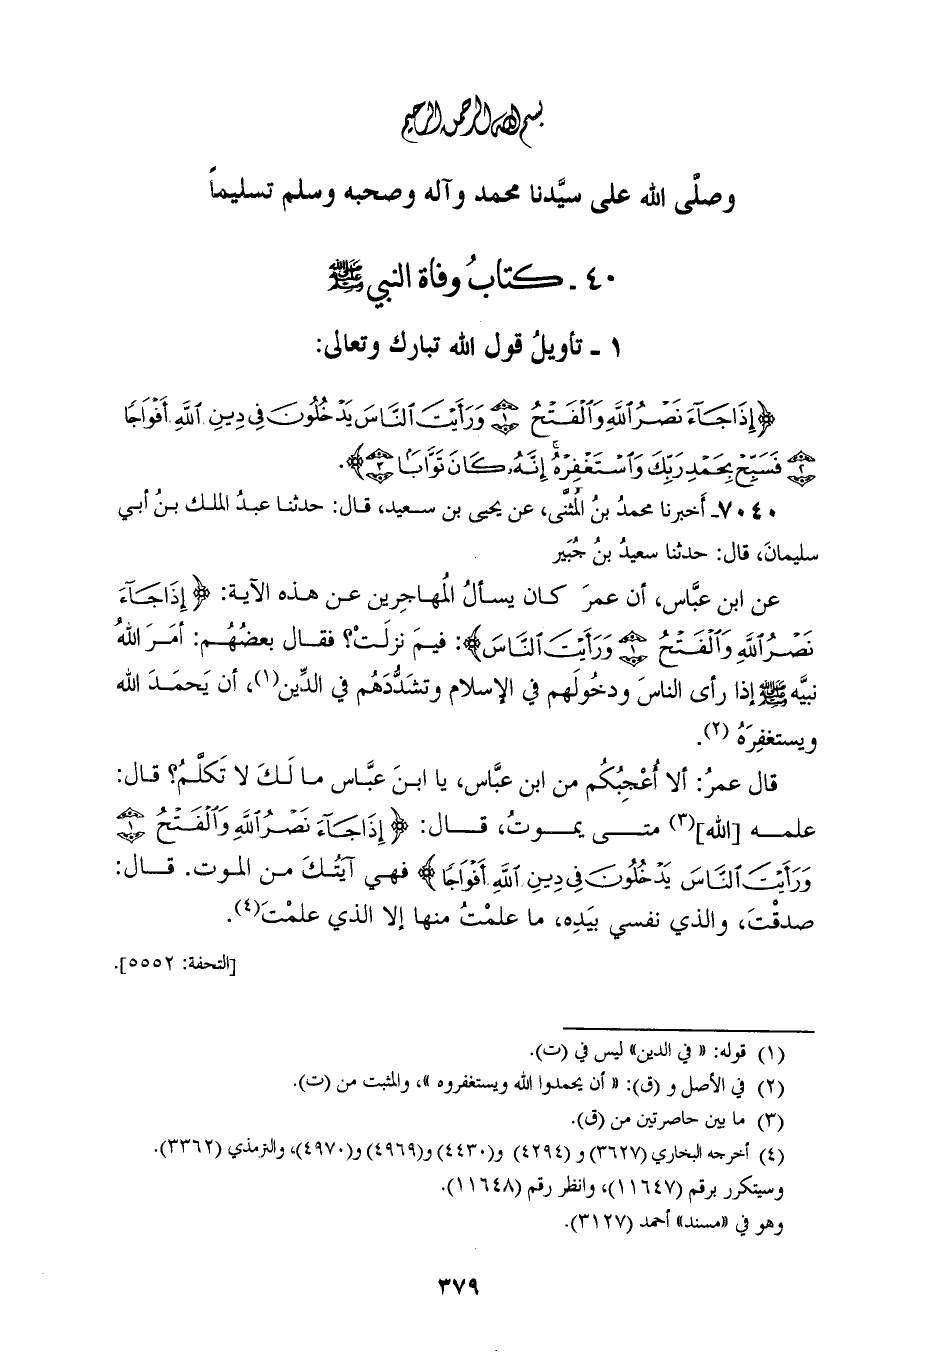 بسم الله الرحمن الرحيم
وصلَّى الله على سيَّدنا محمد وآله وصحبه وسلم تسليماً
٤٠ ـ كتابُ وفاة النبي ﷺ
١ ـ تأويلُ قول الله تبارك وتعالى:
﴿إِذَا جَآءَ نَصْرُ ٱللَّهِ وَٱلْفَتْحُ ١ وَرَأَيْتَ ٱلنَّاسَ يَدْخُلُونَ فِى دِينِ ٱللَّهِ أَفْوَاجًا
٢ فَسَبِّحْ بِحَمْدِ رَبِّكَ وَٱسْتَغْفِرْهُ ۚ إِنَّهُۥ كَانَ تَوَّابًۢا ٣﴾.
٧٠٤٠ـ أخبرنا محمدُ بنُ المُثنَّى، عن يحيى بن سعيد، قال: حدثنا عبدُ الملك بنُ أبي
سليمانَ، قال: حدثنا سعيدُ بنُ جُبَير
عن ابن عبَّاس، أن عمرَ كان يسألُ المُهاجِرين عن هذه الآية: ﴿إِذَا جَآءَ
نَصْرُ ٱللَّهِ وَٱلْفَتْحُ ١ وَرَأَيْتَ ٱلنَّاسَ﴾: فيمَ نزلَتْ؟ فقال بعضُهُم: أمَرَ اللهُ
نبيَّه ﷺ إذا رأى الناسَ ودخُولَهم في الإسلام وتشدُّدَهُم في الدِّين(١)، أن يَحمَدَ الله
ويستغفِرَهُ (٢).
قال عمرُ: ألا أُعْجِبُكُم من ابن عبَّاس، يا ابنَ عبَّاس ما لَكَ لا تَكلَّمُ؟ قال:
علمه [الله](٣) متى يموتُ، قال: ﴿إِذَا جَآءَ نَصْرُ ٱللَّهِ وَٱلْفَتْحُ ١
وَرَأَيْتَ ٱلنَّاسَ يَدْخُلُونَ فِى دِينِ ٱللَّهِ أَفْوَاجًا﴾ فهي آيَتُكَ من الموت. قال:
صدقْتَ، والذي نفسي بيَدِه، ما علمْتُ منها إلا الذي علمْتَ(٤).
[التحفة: ٥٥٥٢].
(١) قوله: «في الدين» ليس في (ت).
(٢) في الأصل و (ق): «أن يحمدوا الله ويستغفروه»، والمثبت من (ت).
(٣) ما بين حاصرتين من (ق).
(٤) أخرجه البخاري (٣٦٢٧) و (٤٢٩٤) و(٤٤٣٠) و(٤٩٦٩) و(٤٩٧٠)، والترمذي (٣٣٦٢).
وسيتكرر برقم (١١٦٤٧)، وانظر رقم (١١٦٤٨).
وهو في «مسند» أحمد (٣١٢٧).
٣٧٩